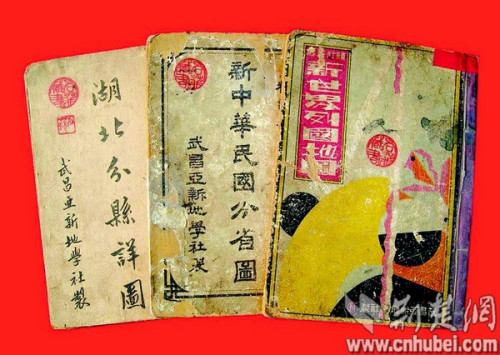 湖北分縣詳圖
武昌亞新地學社製
新中華民國分省圖
武昌亞新地學社製
新世界列國地圖
荆楚網
www.cnhubei.com